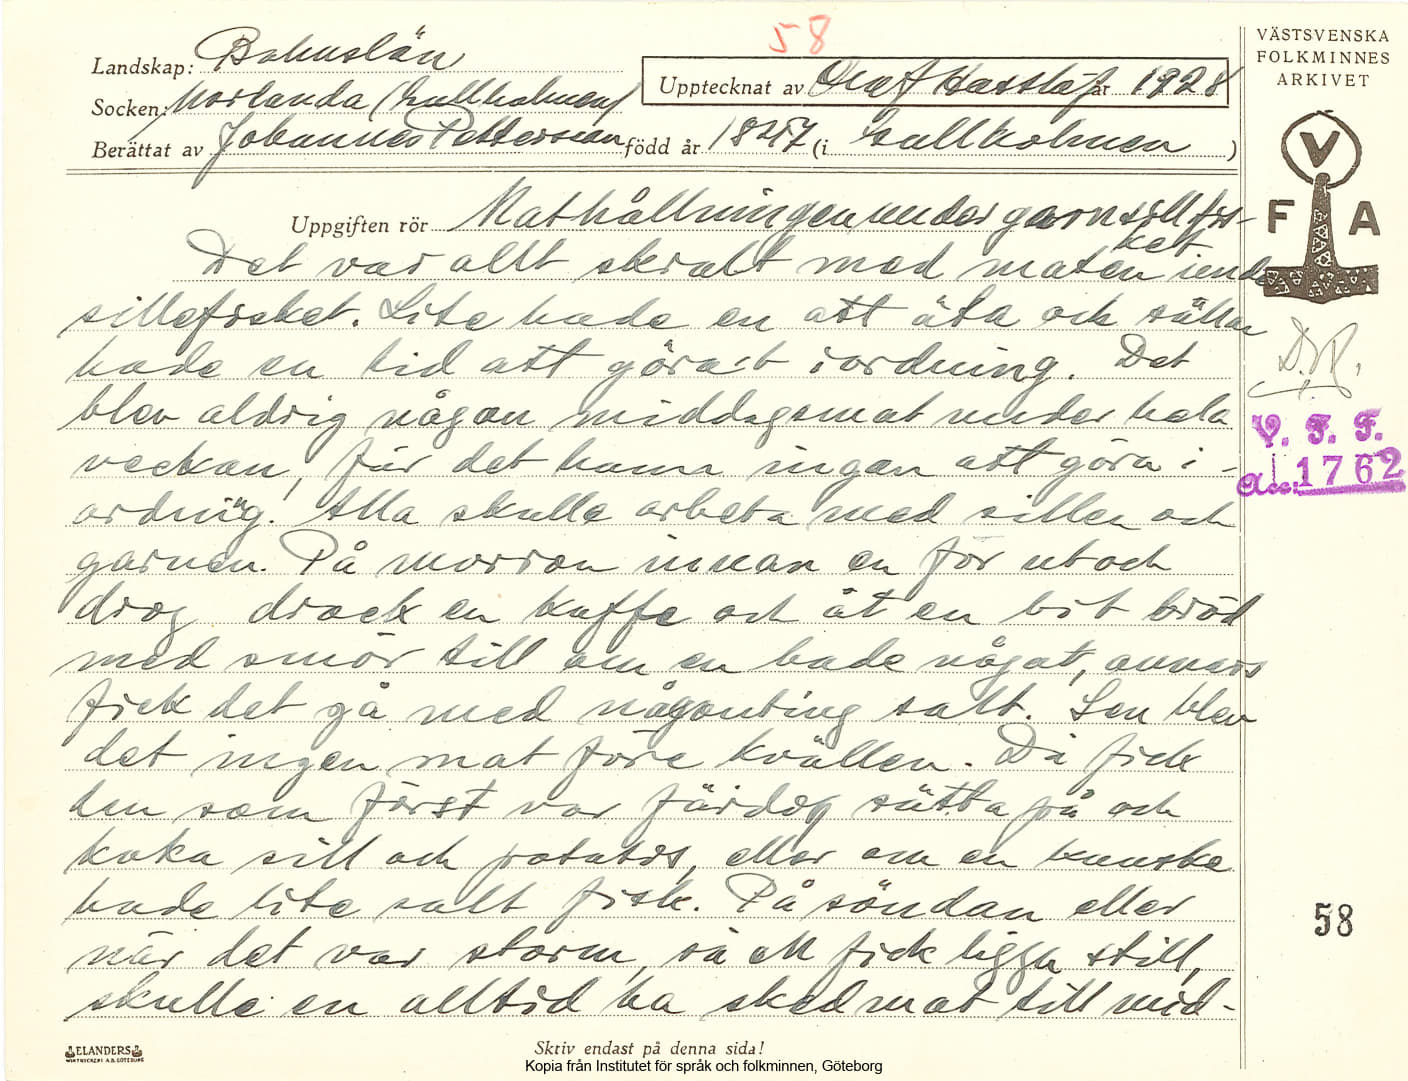 58
VÄSTSVENSKA
FOLKMINNES
ARKIVET
Landskap: Bohuslän
Upptecknat av Olof Hasslöf år 1928
Socken: Morlanda (Gullholmen)
Berättat av Johannes Pettersson född år 1857 (i Gullholmen)
V
F A
Uppgiften rör Mathållningen under garnsillfis-
ket
Det var allt skralt med maten unde
sillefisket. Lite hade en att äta och sällan
hade en tid att göra't iordning. Det
blev aldrig någon middagsmat under hela
veckan, för det hann ingen att göra i-
ordning. Alla skulle arbeta med sillen och
garnen. På morron innan en för ut och
drog drack en kaffe och åt en bit bröd
med smör till om en hade något, annars
fick det gå med någonting salt. Sen blev
det ingen mat före kvällen. Då fick
den som först var färdig sätta på och
koka sill och potatis, eller om en kanske
hade lite salt fisk. På söndan eller
när det var storm, så att fick ligga still,
skulle en alltid ha skedmat till mid-
D.R.
V. F. F.
Acc. 1762
58
ELANDERS
Skriv endast på denna sida!
Kopia från Institutet för språk och folkminnen, Göteborg